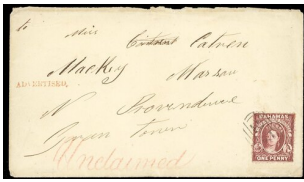 to
Miss Catven
Mackey Nassau
ADVERTISED.
N Providence
Unclaimed
BAHAMAS
ONE PENNY